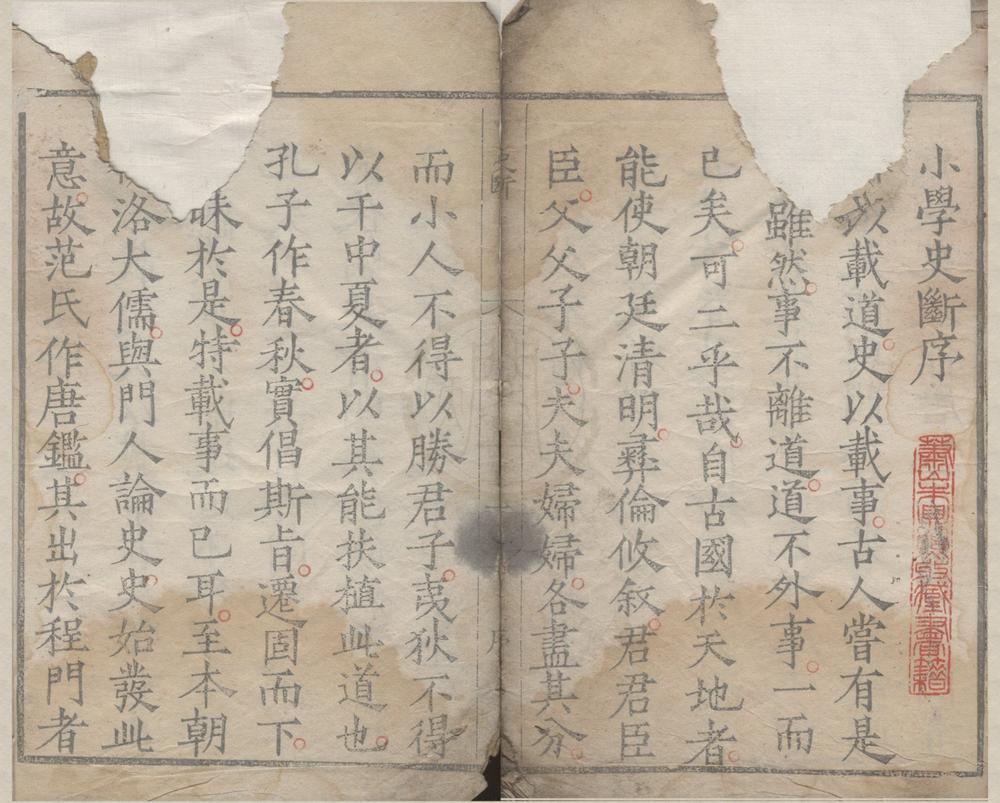 小學史斷序
以載道史以載事古人嘗有是
雖然事不離道道不外事一而
已矣可二乎哉自古國於天地者
能使朝廷清明彝倫攸敘君君臣
臣父父子子夫夫婦婦各盡其分
序
而小人不得以勝君子夷狄不得
以干中夏者以其能扶植此道也
孔子作春秋實倡斯旨遷固而下
昧於是特載事而已耳至本朝
洛大儒與門人論史史始發此
意故范氏作唐鑑其出於程門者